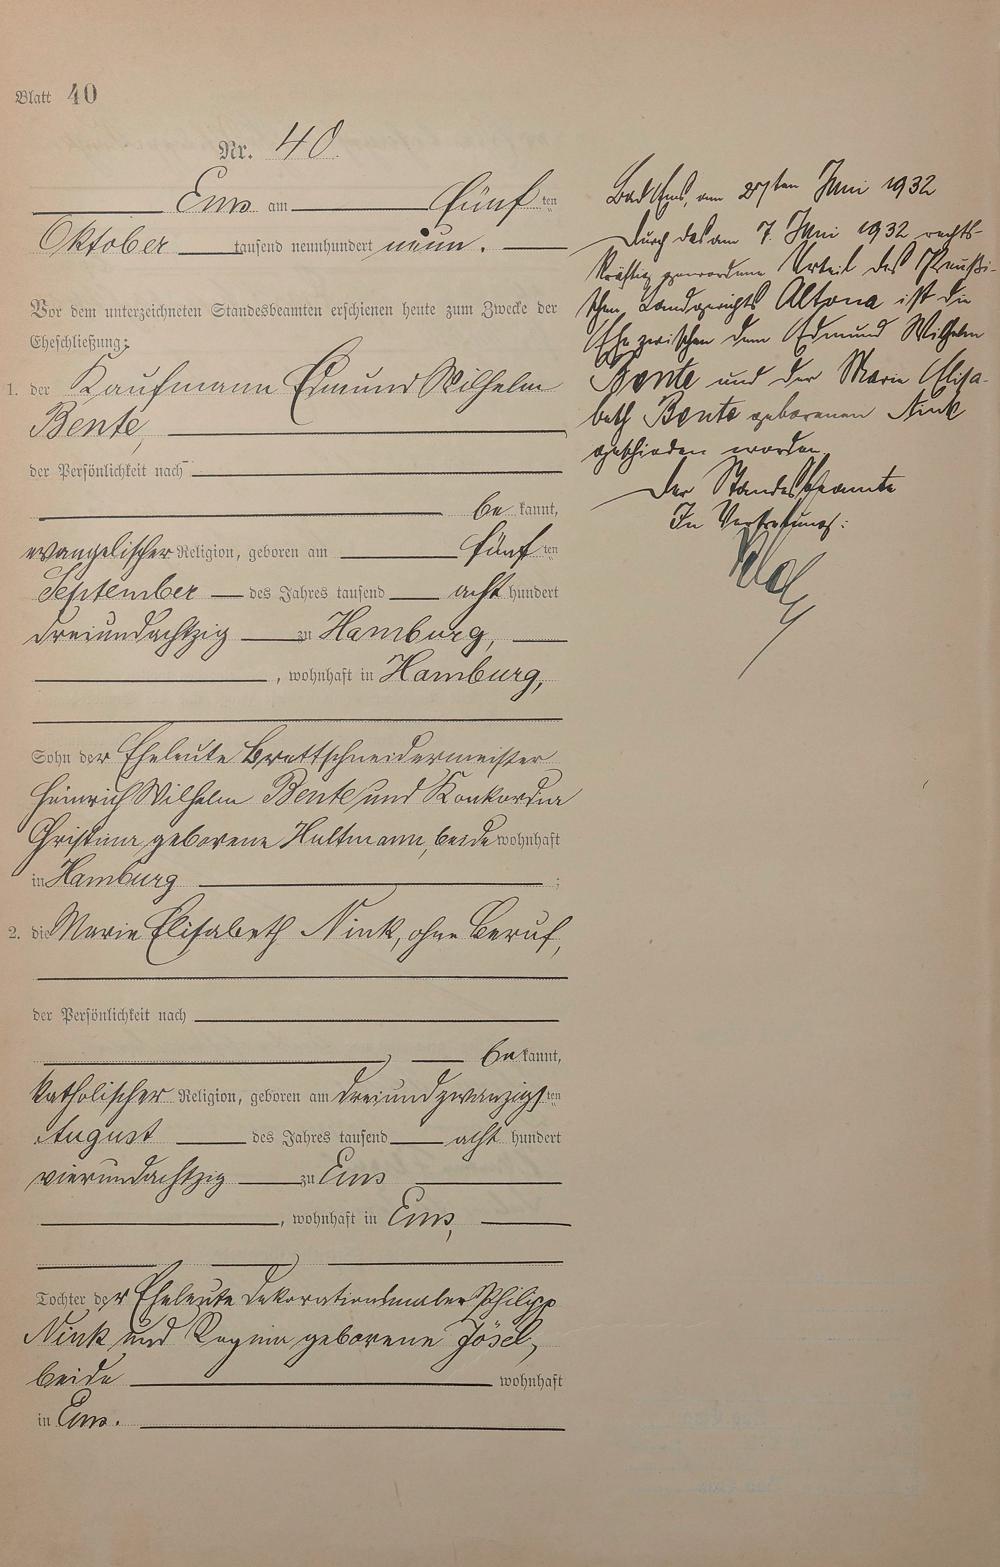 Blatt 40
Nr. 40.
Ems am fünften
Oktober tausend neunhundert neun.
Vor dem unterzeichneten Standesbeamten erschienen heute zum Zwecke der
Eheschließung:
1. der Kaufmann Edmund Wilhelm
Bente,
der Persönlichkeit nach
bekannt,
evangelischer Religion, geboren am fünften
September des Jahres tausend acht hundert
dreiundachtzig zu Hamburg,
, wohnhaft in Hamburg,
Sohn der Eheleute Brettschneidermeister
Heinrich Wilhelm Bente und Konkordia
Christina geborene Hultmann, beide wohnhaft
in Hamburg ;
2. die Marie Elisabeth Nink, ohne Beruf,
der Persönlichkeit nach
bekannt,
katholischer Religion, geboren am dreiundzwanzigsten
August des Jahres tausend acht hundert
vierundachtzig zu Ems
, wohnhaft in Ems,
Tochter der Eheleute Dekorationsmaler Philipp
Nink und Regina geborene Jösel,
beide wohnhaft
in Ems.
Bad Ems, am 27ten Juni 1932
Durch das am 7. Juni 1932 rechts-
kräftig gewordene Urteil des Preußi-
schen Landgerichts Altona ist die
Ehe zwischen dem Edmund Wilhelm
Bente und der Marie Elisa-
beth Bente geborenen Nink
geschieden worden.
Der Standesbeamte
In Vertretung: